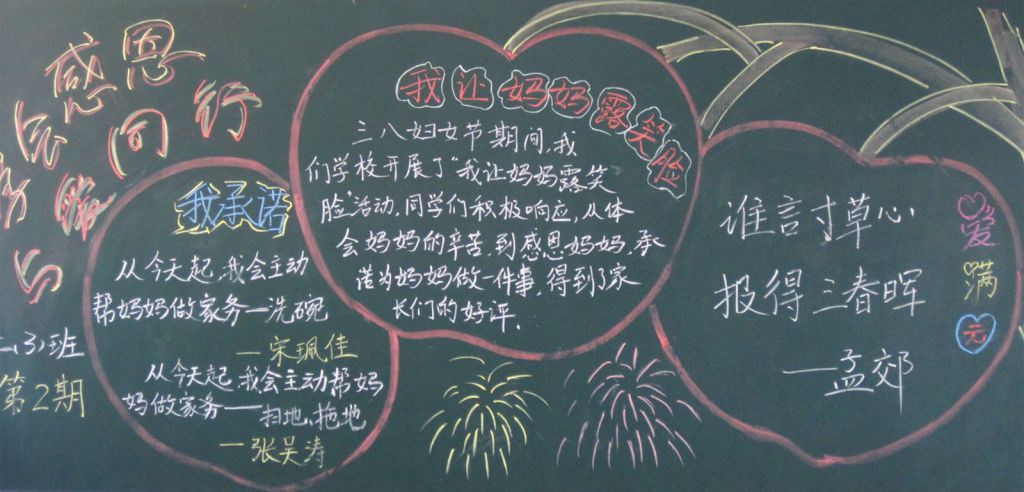 感恩
同行
3)班
第2期
我承诺
从今天起,我会主动
帮妈妈做家务—洗碗
—宋珮佳
从今天起,我会主动帮妈
妈做家务——扫地、拖地
—张吴涛
我让妈妈露笑脸
三八妇女节期间,我
们学校开展了“我让妈妈露笑
脸”活动,同学们积极响应,从体
会妈妈的辛苦,到感恩妈妈,承
诺为妈妈做一件事,得到了家
长们的好评.
谁言寸草心
报得三春晖
—孟郊
爱
满
元